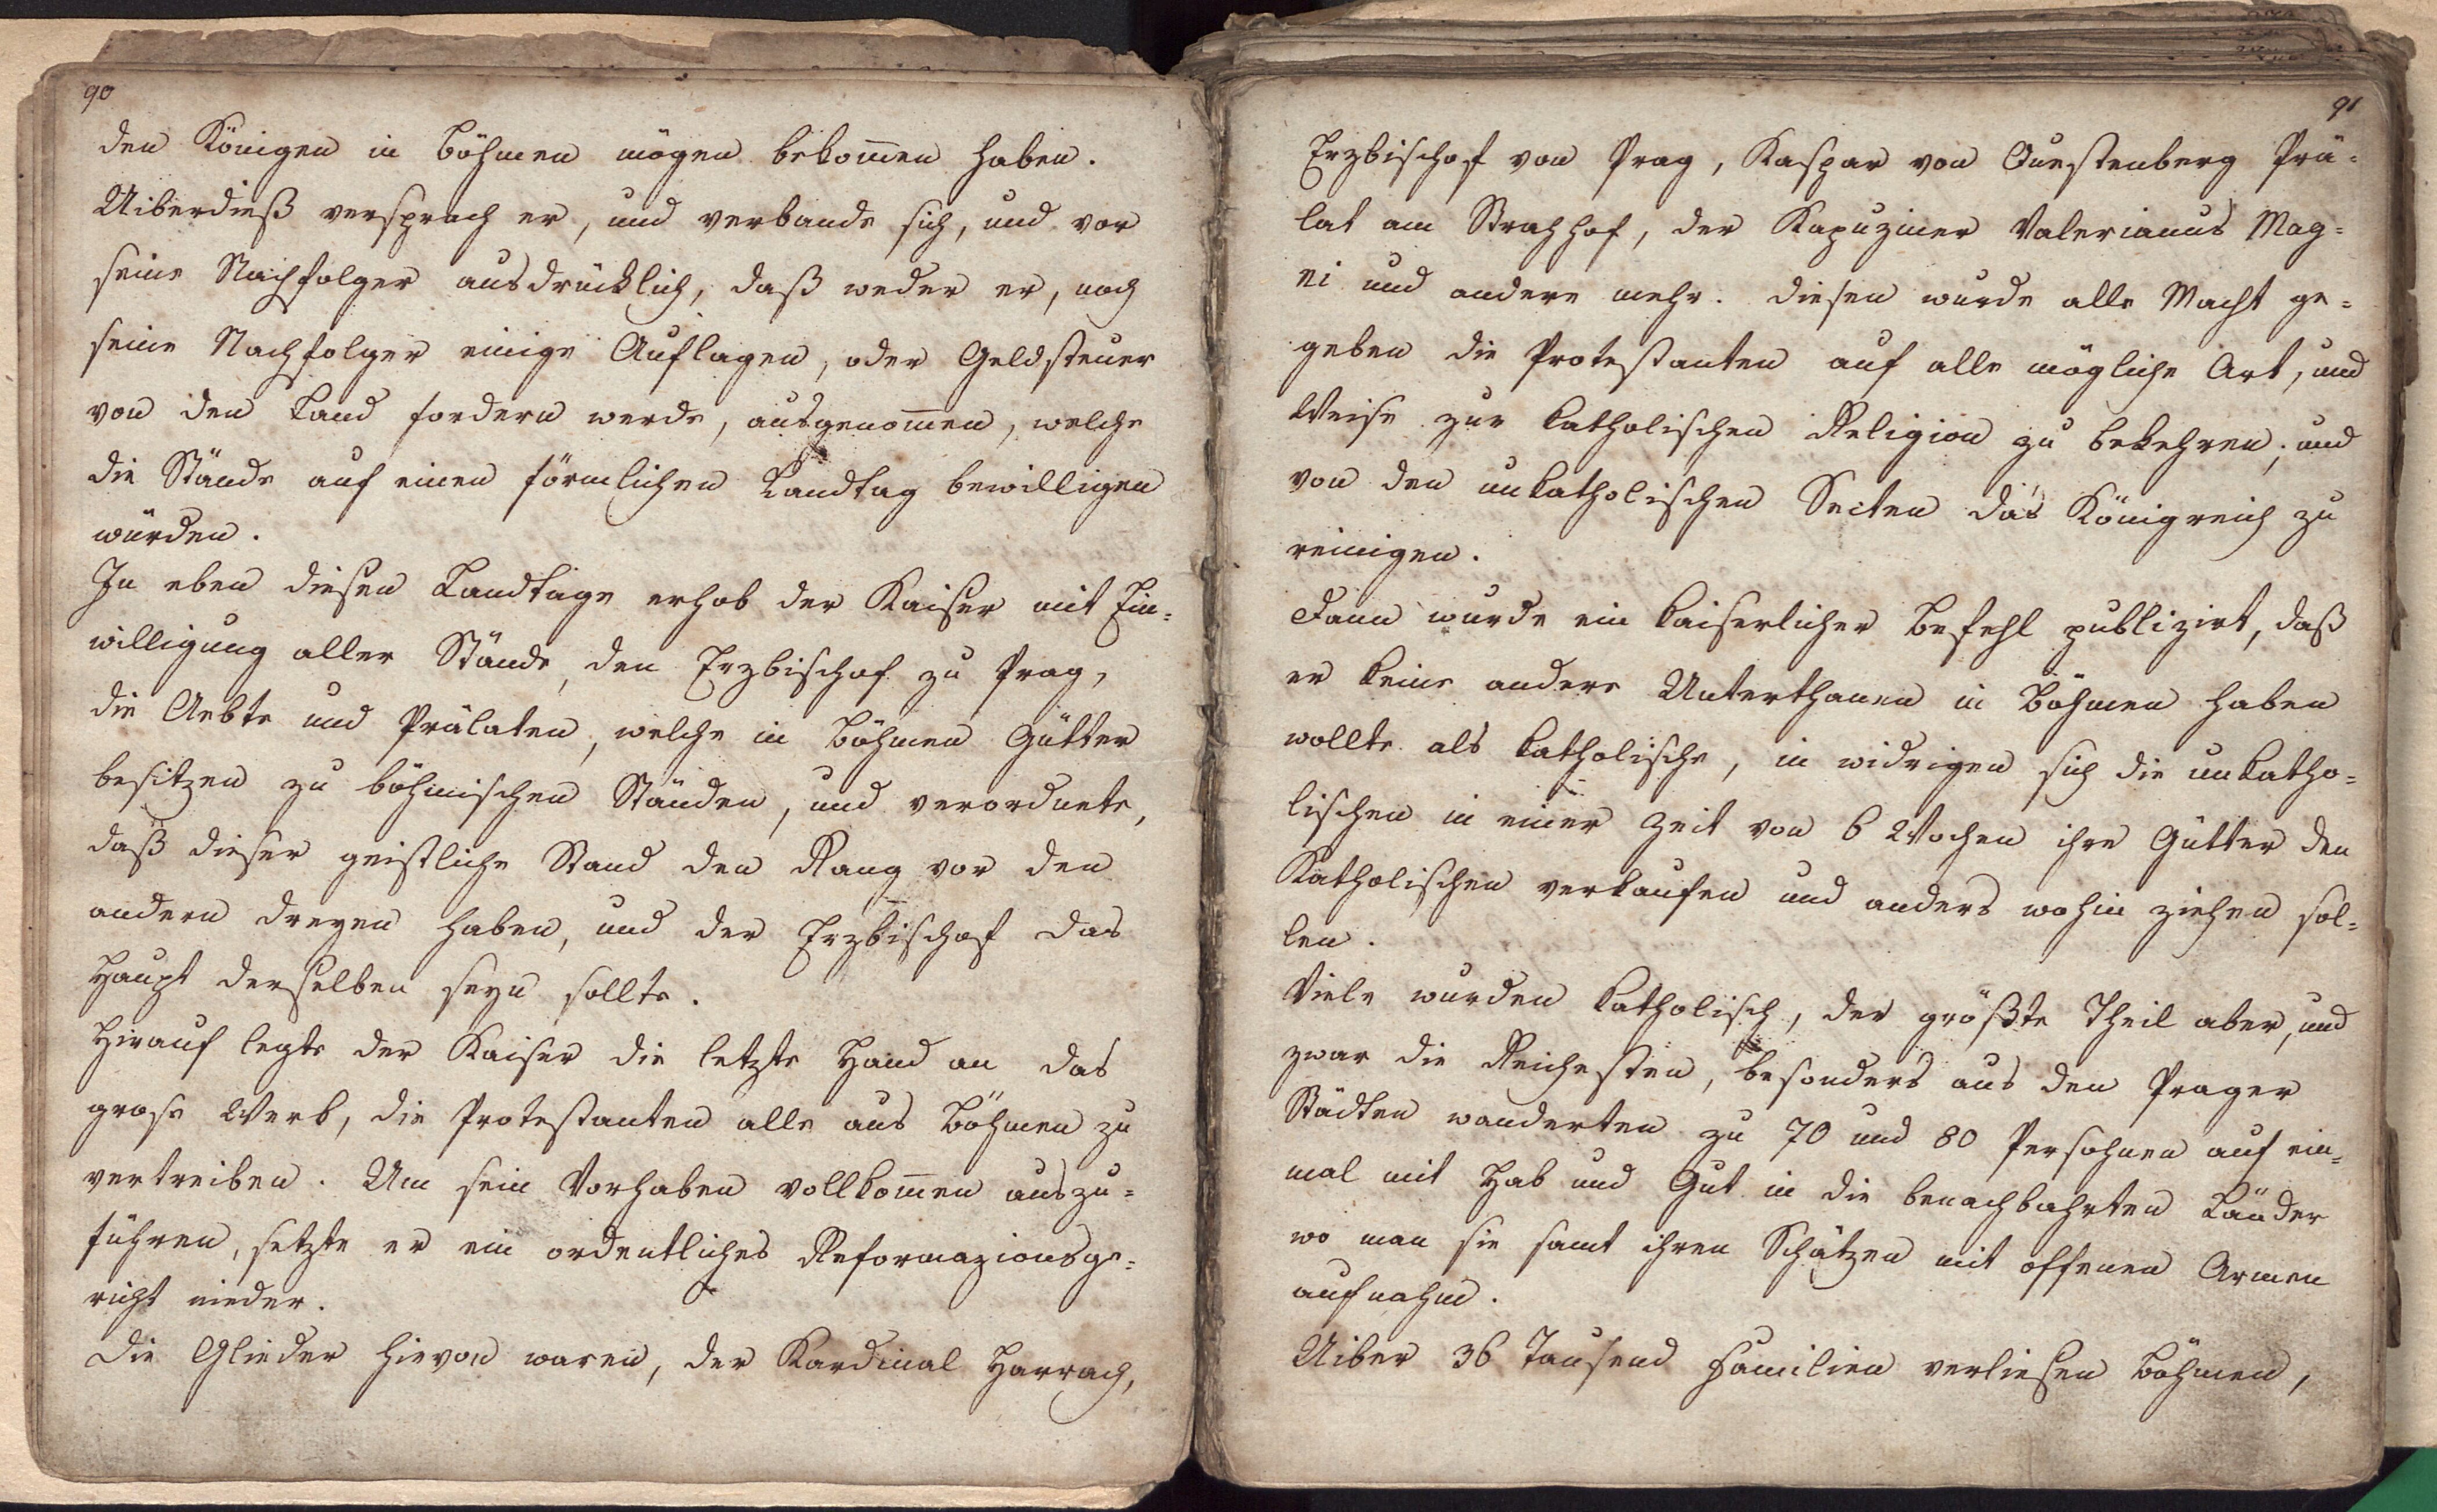 90
den Königen in Böhmen mögen bekom̄en haben.
Uiberdieß versprach er, und verbande sich, und vor
seine Nachfolger ausdrücklich, daß weder er, noch
seine Nachfolger einige Auflagen, oder Geldsteuer
von den Land fordern werde, ausgenom̄en, welche
die Stände auf einen förmlichen Landtag bewilligen
würden.
In eben diesen Landtage erhob der Kaiser mit Ein=
willigung aller Stände, den Erzbischof zu Prag,
die Aebte und Prälaten, welche in Böhmen Gütter
besitzen zu böhmischen Ständen, und verordnete,
daß dieser geistliche Stand den Rang vor den
andern dreyen haben, und der Erzbischof das
Haupt derselben seyn sollte.
Hirauf legte der Kaiser die letzte Hand an das
grose Werk, die Protestanten alle aus Böhmen zu
vertreiben. Um sein Vorhaben vollkom̄en auszu=
führen, setzte er ein ordentliches Reformazionsge=
richt nieder.
Die Glieder hievon waren, der Kardinal Harrach,
91
Erzbischof von Prag, Kaspar von Questenberg Prä=
lat am Strahhof, der Kapuziner Valerianus Mag=
ni und andere mehr. Diesen wurde alle Macht ge=
geben die Protestanten auf alle mögliche Art, und
Weise zur katholischen Religion zu bekehren; und
von den unkatholischen Secten das Königreich zu
reinigen.
Dann wurde ein kaiserlicher Befehl publizirt, daß
er keine andere Unterthanen in Böhmen haben
wollte als katholische, in widrigen sich die unkatho=
lischen in einer Zeit von 6 Wochen ihre Gütter den
Katholischen verkaufen und anders wohin ziehen sol=
len.
Viele wurden katholisch, der größte Theil aber, und
zwar die Reichesten, besonders aus den Prager
Städten wanderten zu 70 und 80 Persohnen auf ein=
mal mit Hab und Gut in die benachbahrten Länder
wo man sie samt ihren Schätzen mit offenen Armen
aufnahm.
Uiber 36 Tausend Familien verliesen Böhmen,